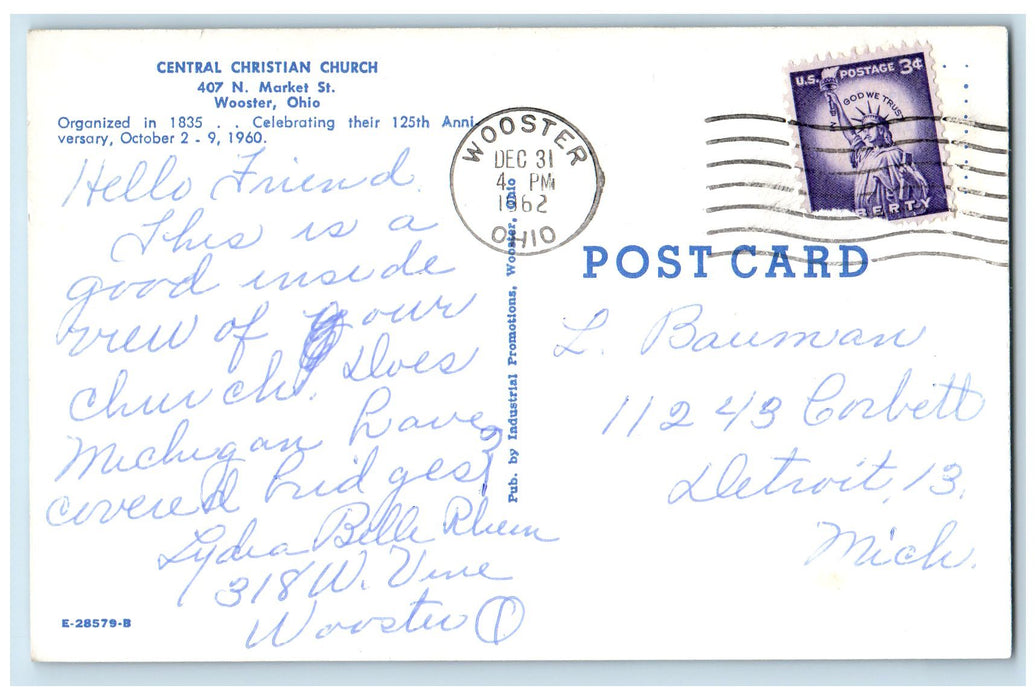 CENTRAL CHRISTIAN CHURCH
407 N. Market St.
Wooster, Ohio
Organized in 1835 . . Celebrating their 125th Anni-
versary, October 2 - 9, 1960.
Hello Friend.
This is a
good inside
view of our
church. Does
Michigan have
covered bridges?
Lydia Belle Rhem
318 W. Vine
Wooster O
E-28579-B
Pub. by Industrial Promotions, Wooster, Ohio
WOOSTER
DEC 31
4 PM
1962
OHIO
U.S. POSTAGE 3¢
GOD WE TRUST
BERTY
POST CARD
L. Bauman
11243 Corbett
Detroit, 13.
Mich.